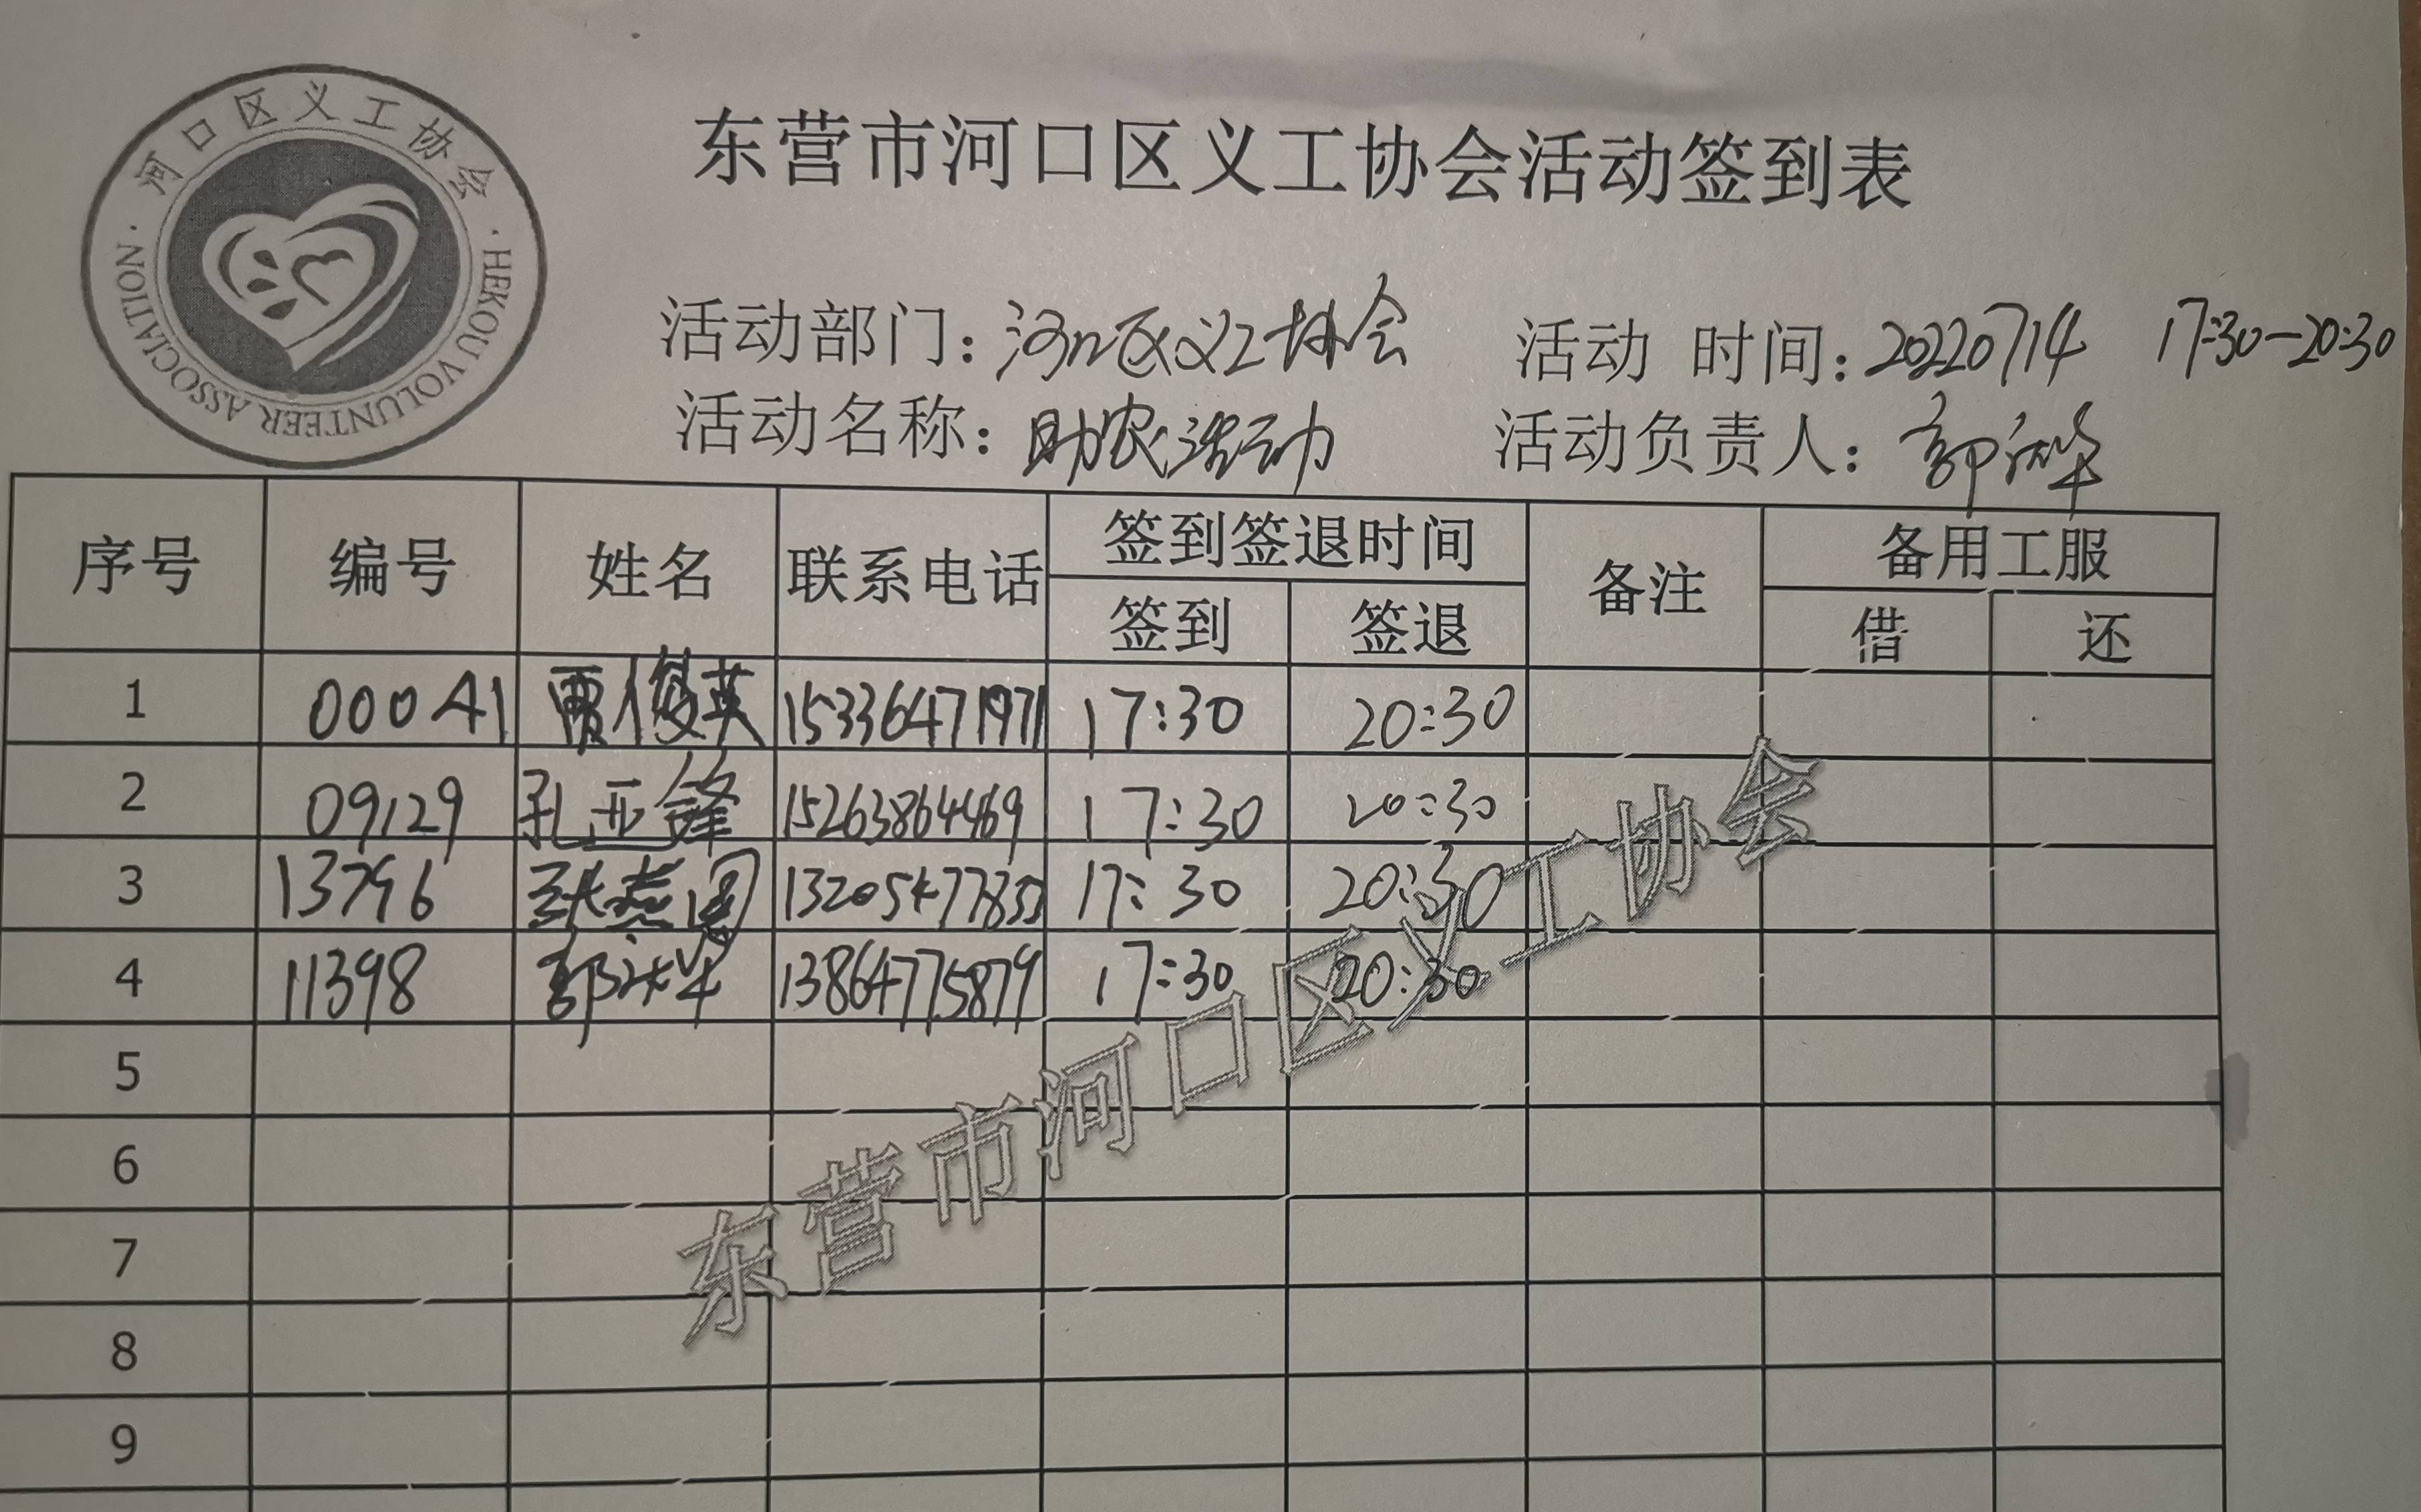 河口区义工协会
HEKOU VOLUNTEER ASSOCIATION
东营市河口区义工协会活动签到表
活动部门：河口区义工协会 活动 时间：20220714 17:30-20:30
活动名称：助农活动 活动负责人：郭
序号 编号 姓名 联系电话 签到签退时间 备注 备用工服
签到 签退 借 还
1 00041 贾俊英 15336471971 17:30 20:30
2 09129 孔亚锋 15263864469 17:30 20:30
3 13796 张 17:30 20:30
4 11398 郭 13864775879 17:30 20:30
5
6
7
8
9
东营市河口区义工协会